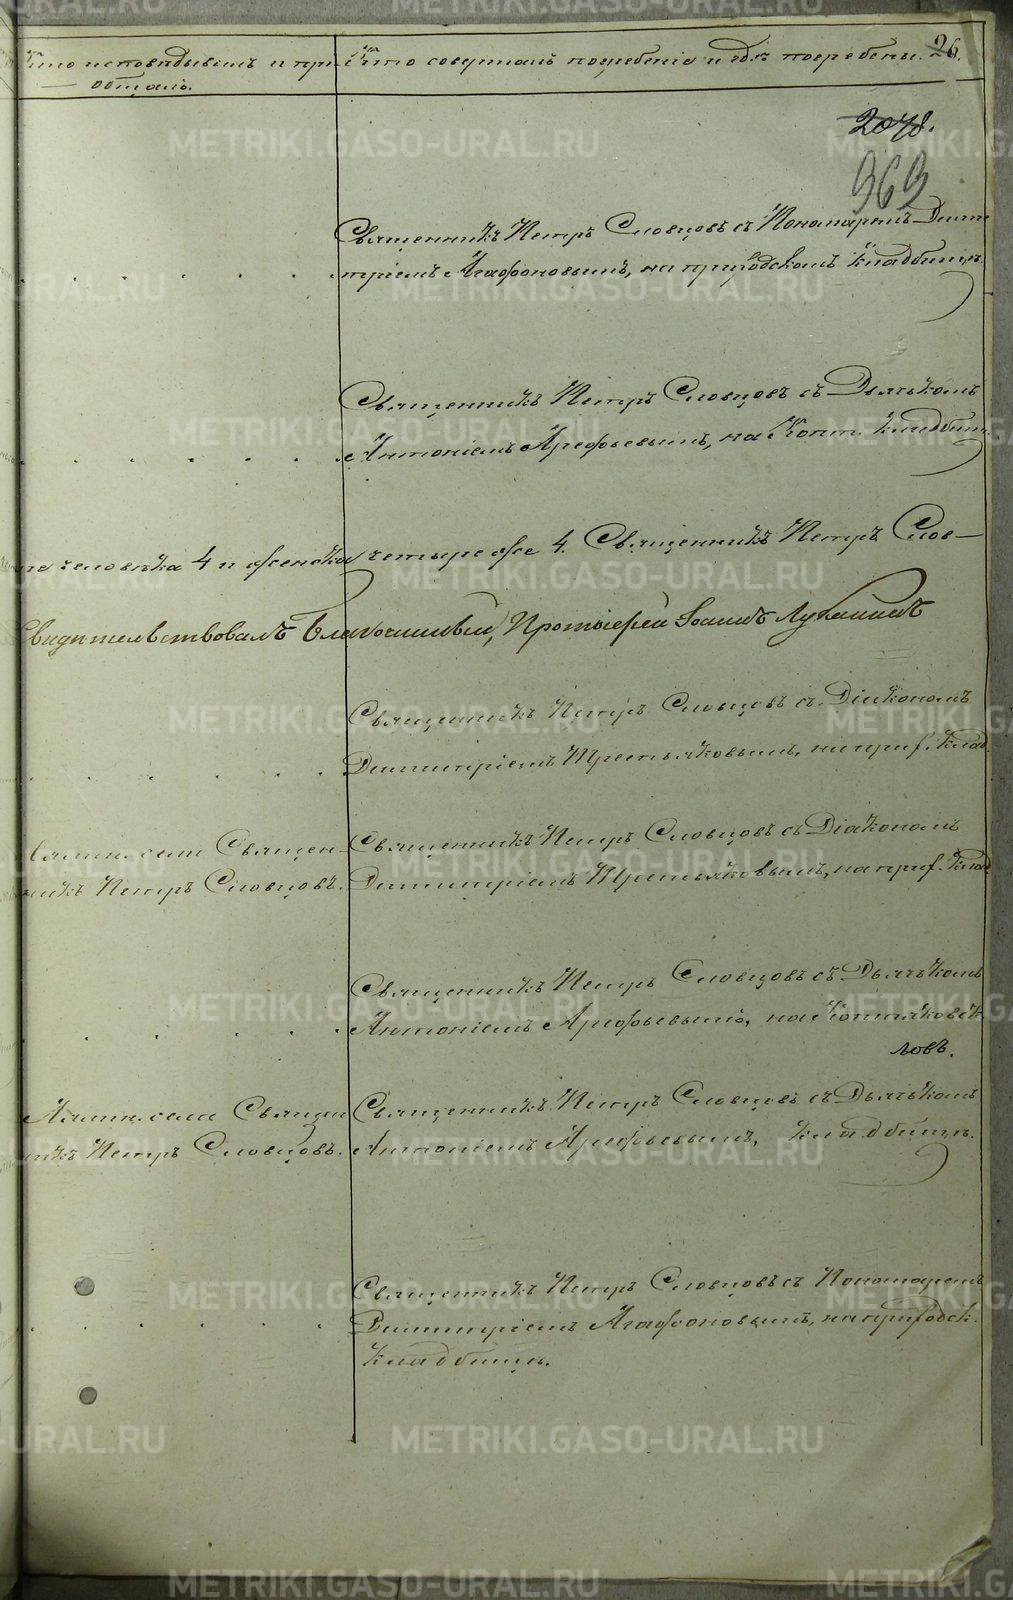 Кто исповѣдывалъ и прі- Кто совершалъ погребеніе и гдѣ погребены. 26.
общалъ.
2078.
969
Священникъ Петръ Словцовъ съ Пономаремъ Дими-
тріемъ Агафоновымъ, на приходскомъ кладбищѣ.
Священникъ Петръ Словцовъ съ Дьячькомъ
Антоніемъ Арефьевымъ, на Копт. кладбищ.
человѣка 4 и женска четыре же 4. Священникъ Петръ Слов-
Свидѣтельствовалъ Благочинный, Протоіерей Іоаннъ Луканинъ
Священникъ Петръ Словцовъ съ Діакономъ
Димитріемъ Третьяковымъ, на прих. клад.
села Священ- Священникъ Петръ Словцовъ съ Діакономъ
никъ Петръ Словцовъ. Димитріемъ Третьяковымъ, на прих. клад.
Священникъ Петръ Словцовъ съ Дьячькомъ
Антоніемъ Арефьевымъ, на Коптяковск.
ловъ.
села Священ Священникъ Петръ Словцовъ съ Дьячькомъ
никъ Петръ Словцовъ. Антоніемъ Арефьевымъ, кладбищѣ.
Священникъ Петръ Словцовъ съ Пономаремъ
Димитріемъ Агафоновымъ, на приходск.
кладбищѣ.
METRIKI.GASO-URAL.RU